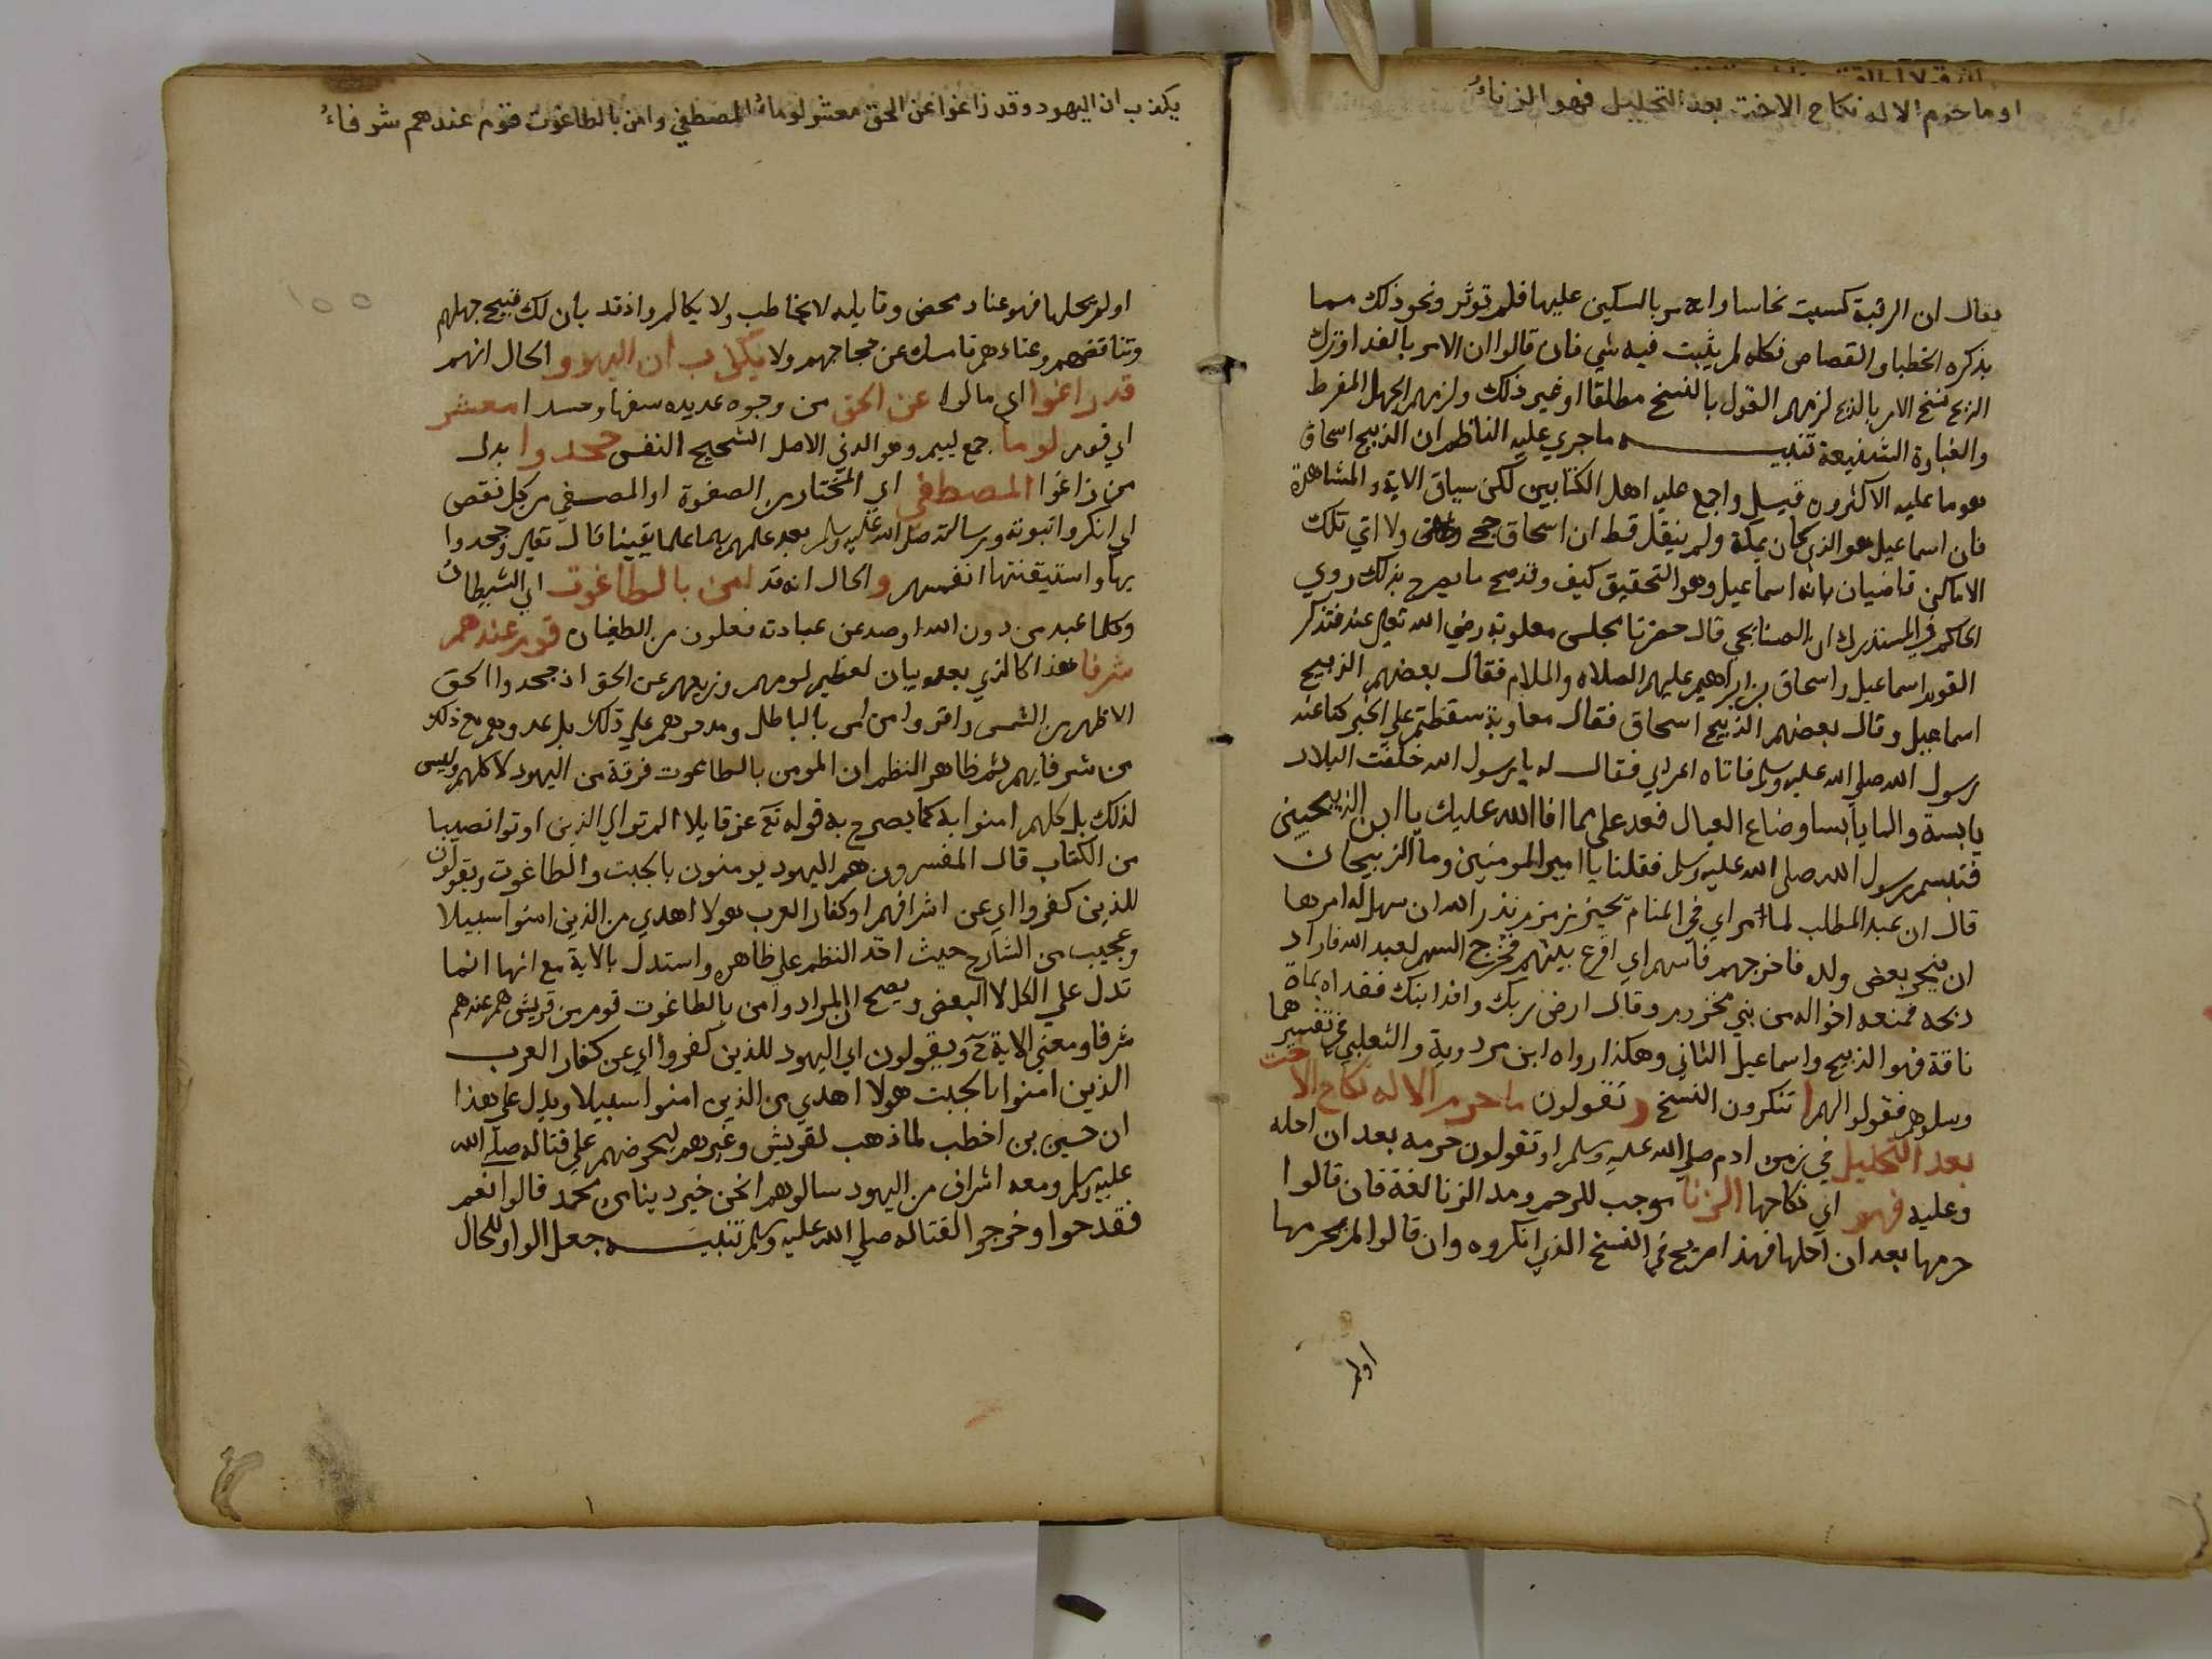 او ما حرم الاله نكاح الاخت بعد التحليل فهو الزناءُ
يقال ان الرقبة كسيت نحاسا وامر بالسكين عليها فلم توثر ونحو ذلك مما
يذكره الخطبا والقصاص فكله لم يثبت فيه شي فان قالوا ان الامر بالفدا وترك
الذبح نسخ الامر بالذبح لزمهم القول بالنسخ مطلقا او غير ذلك ولزمهم الجهل المفرط
والغباوة الشنيعة تنبيه ما جري عليه الناظم ان الذبيح اسحاق
هو ما عليه الاكثرون قيل واجمع عليه اهل الكتابين لكن سياق الاية والمشاهدة
فان اسماعيل هو الذي كان بمكة ولم ينقل قط ان اسحاق حج ولا اتي تلك
الاماكن قاضيان بانه اسماعيل وهو التحقيق كيف وقد صح ما يصرح بذلك روي
الحاكم في المستدرك ان الصنابحي قال حضرنا مجلس معاوية رضي الله تعالي عنه فتذاكر
القوم اسماعيل واسحاق بن ابراهيم عليهم الصلاه والسلام فقال بعضهم الذبيح
اسماعيل وقال بعضهم الذبيح اسحاق فقال معاوية سقطتم علي الخبير كنا عند
رسول الله صلي الله عليه وسلم فاتاه اعرابي فقال له يا رسول الله خلفت البلاد
يابسة والما يابسا وضاع العيال فعد علي مما افا الله عليك يا ابن الذبيحين
فتبسم رسول الله صلي الله عليه وسلم فقلنا يا امير المومنين وما الذبيحان
قال ان عبد المطلب لما امر اي في المنام بحفر زمزم نذر الله ان سهل له امرها
ان ينحر بعض ولده فاخرجهم فاسهم اي اقرع بينهم فخرج السهم لعبد الله فاراد
ذبحه فمنعه اخواله من بني مخزوم وقال ارض ربك وافد ابنك ففداه بماة
ناقة فهو الذبيح واسماعيل الثاني وهكذا رواه ابن مردوية والثعلبي في تفسيرهما
وسلوهم فقولوا لهم ا تنكرون النسخ و تقولون ما حرم الاله نكاح الاخت
بعد التحليل في زمن ادم صلي الله عليه وسلم او تقولون حرمه بعد ان احله
وعليه فهو اي نكاحها الزنا موجب للرحم ومد الزنا لغة فان قالوا
حرمها بعد ان احلها فهذا صريح في النسخ الذي انكروه وان قالوا لم يحرمها
اولم
يكذب ان اليهود وقد زاغوا عن الحق معشر لوماءُ المصطفي وامن بالطاغوت قوم عندهم شرفاءُ
اولم يحلها فهو عناد محض وقايله لا يخاطب ولا يكالم واذ قد بان لك قبيح جهلهم
وتناقضهم وعنادهم فامسك عن حجاجهم ولا يكذب ان اليهود و الحال انهم
قد زاغوا اي مالوا عن الحق من وجوه عديده سفها وحسدا معشر
اي قوم لوما جمع لييم وهو الدني الاصل الشحيح النفس جحدوا بدل
من زاغوا المصطفي اي المختار من الصفوة او المصفي من كل نقص
اي انكروا نبوته ورسالته صلي الله عليه وسلم بعد علمهم بهما علما يقينا قال تعالي وجحدوا
بها واستيقنتها انفسهم و الحال انه قد امن بالطاغوت اي الشيطان
وكلما عبد من دون الله او صد عن عبادته فعلوت من الطغيان قوم عندهم
شرفا هذا كالذي بعده بيان لعظيم لومهم وزيغهم عن الحق اذ جحدوا الحق
الاظهر من الشمس واقروا من امن بالباطل ومدحوهم علي ذلك بل عدوهم مع ذلك
من شرفايهم ثم ظاهر النظم ان المومن بالطاغوت فرقة من اليهود لا كلهم وليس
لذلك بل كلهم امنوا به كما يصرح به قوله تع عز قايلا الم تر الي الذين اوتوا نصيبا
من الكتاب قال المفسرون هم اليهود يومنون بالجبت والطاغوت ويقولون
للذين كفروا اي عن اشرافهم او كفار العرب هولا اهدي من الذين امنوا سبيلا
وعجيب من الشارح حيث اخذ النظم علي ظاهره واستدل بالاية مع انها انما
تدل علي الكل لا البعض ويصح ان المراد وامن بالطاغوت قوم من قريش هم عندهم
شرفا ومعني الاية ح ويقولون اي اليهود للذين كفروا اي عن كفار العرب
الذين امنوا بالجبت هولا اهدي من الذين امنوا سبيلا ويدل علي هذا
ان حسين بن اخطب لما ذهب لقريش وغيرهم ليحرضهم علي قتاله صلي الله
عليه وسلم ومعه اشراف من اليهود سالوهم انحن خير دينا ام محمد قالوا نعم
فقدحوا وخرجوا لقتاله صلي الله عليه وسلم تنبيه جعل الواو للحال